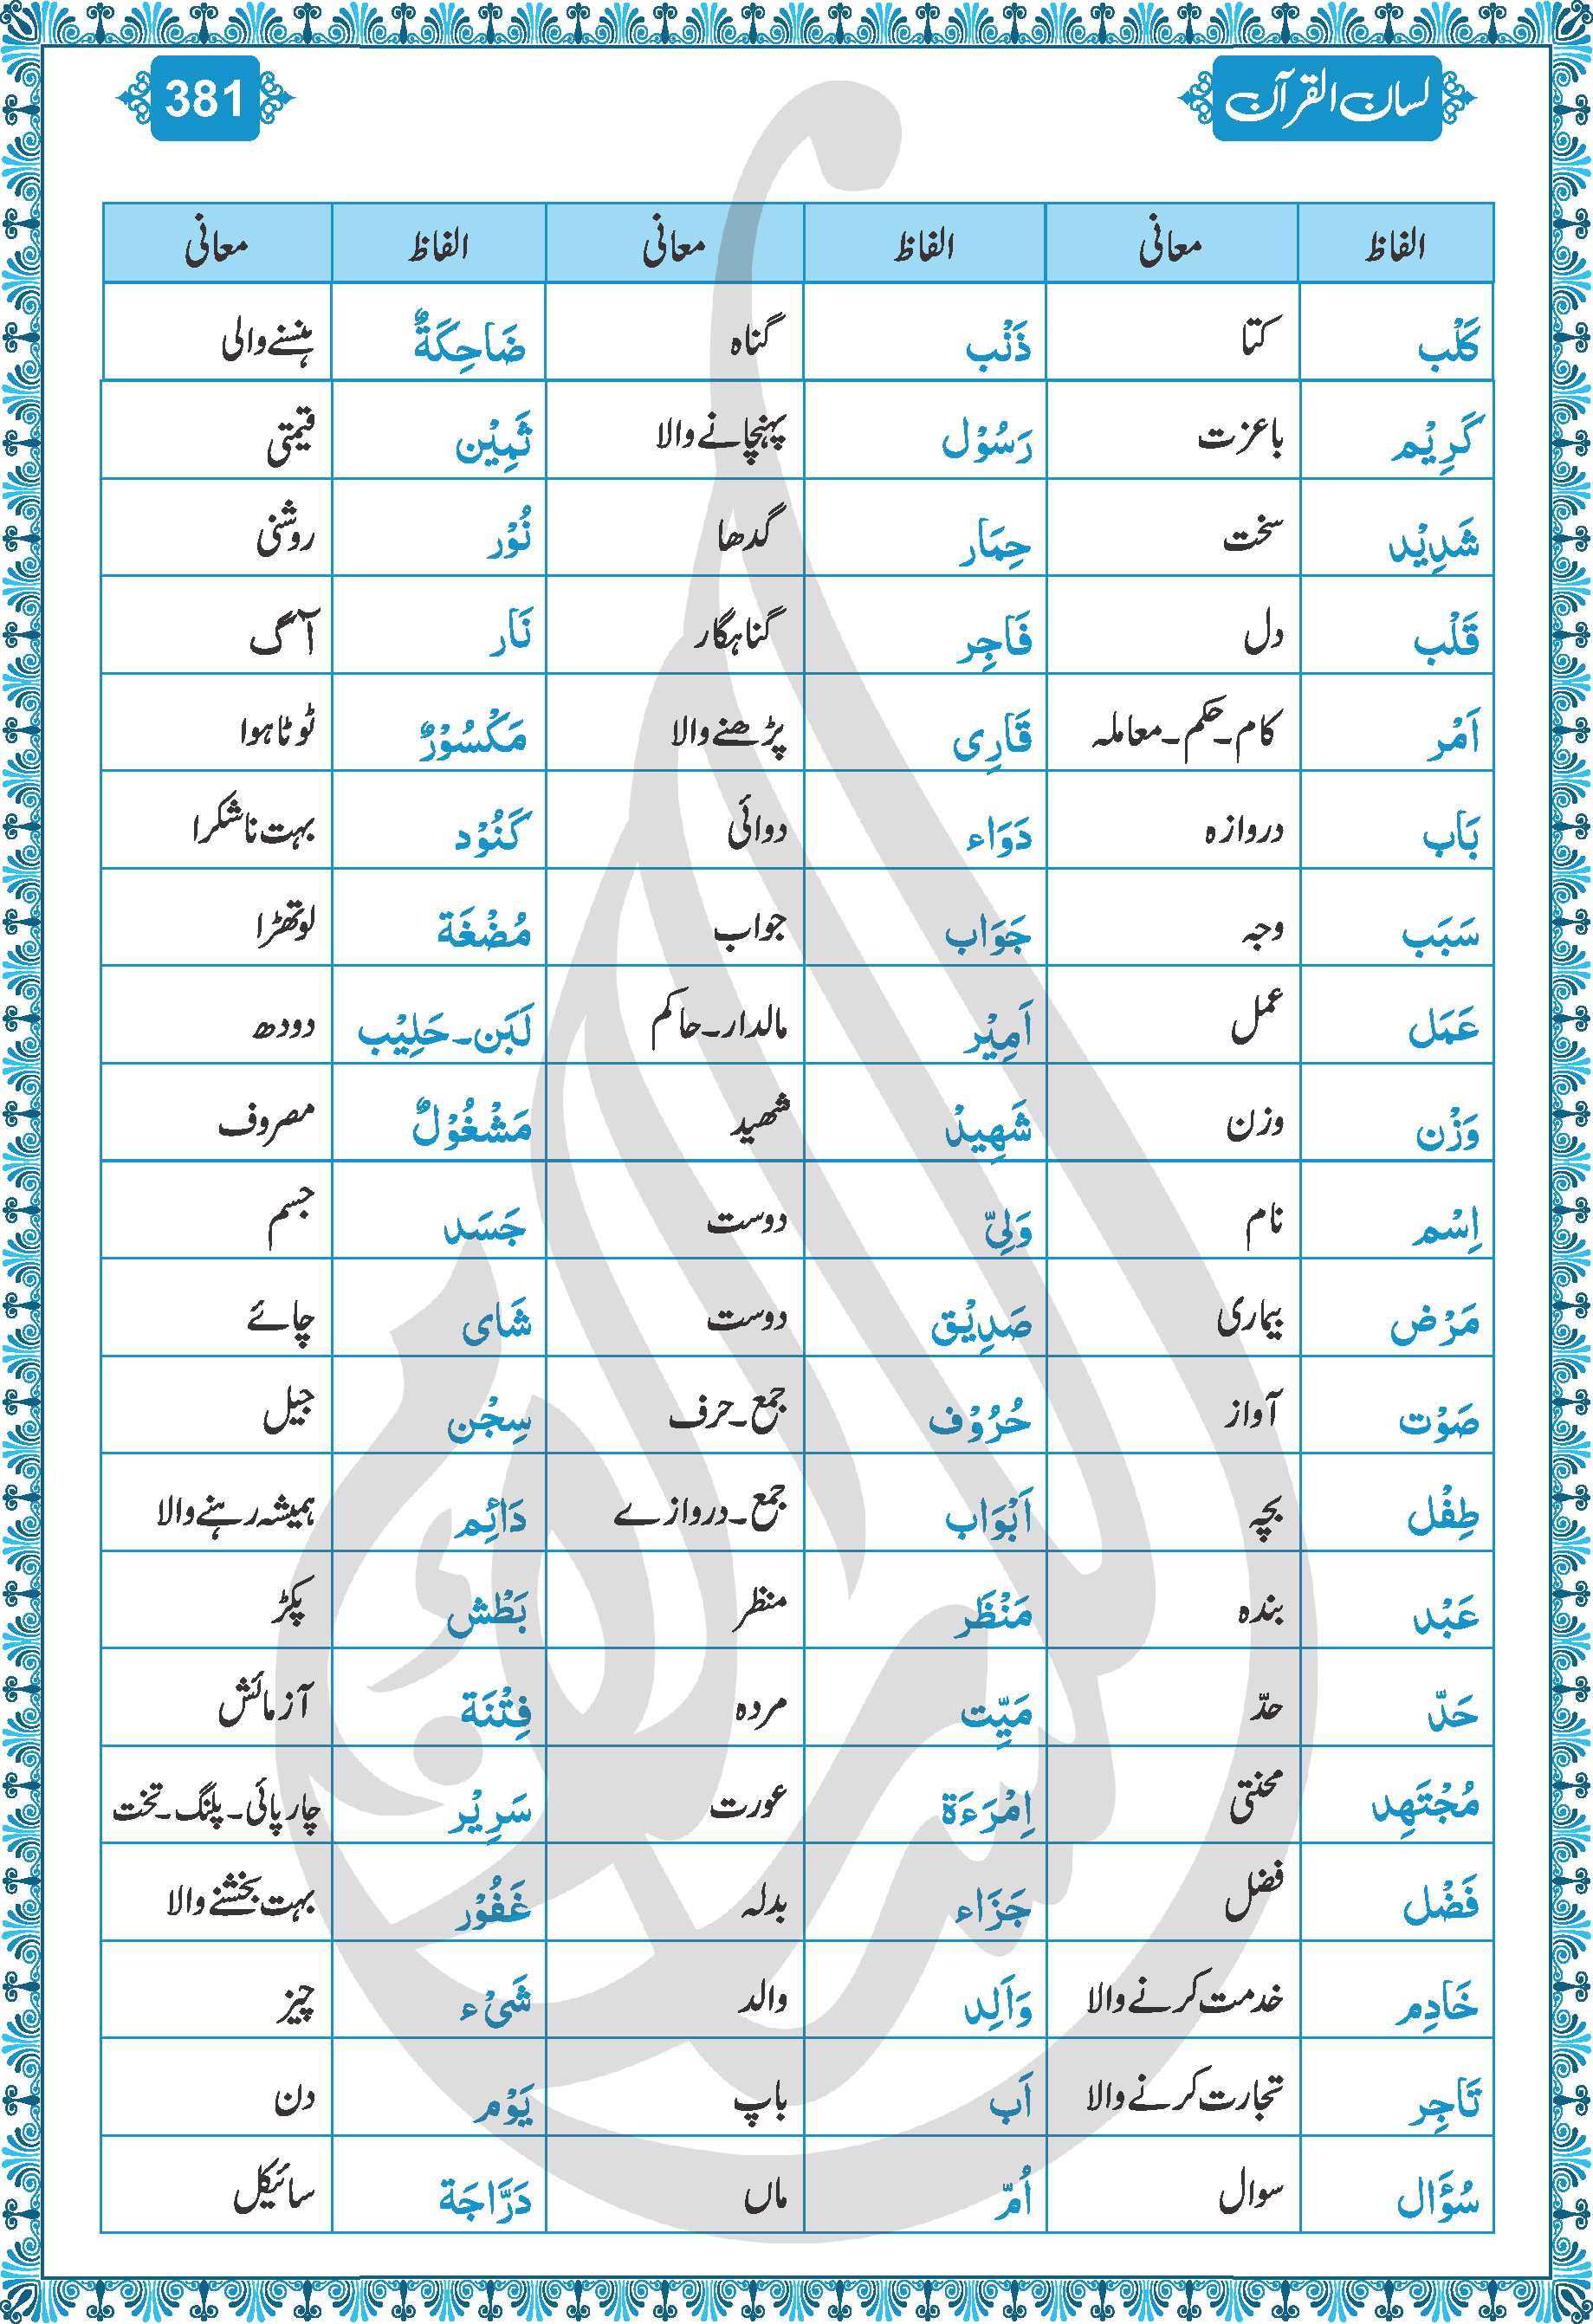 لسان القرآن 381
الفاظ معانی الفاظ معانی الفاظ معانی
کَلْب کتا ذَنْۢب گناہ ضَاحِکَةٌ ہنسنے والی
کَرِیْم باعزت رَسُوْل پہنچانے والا ثَمِیْن قیمتی
شَدِیْد سخت حِمَار گدھا نُوْر روشنی
قَلْب دل فَاجِر گناہگار نَار آگ
اَمْر کام۔حکم۔معاملہ قَارِی پڑھنے والا مَکْسُوْرٌ ٹوٹا ہوا
بَاب دروازہ دَوَاء دوائی کَنُوْد بہت ناشکرا
سَبَب وجہ جَوَاب جواب مُضْغَة لوتھڑا
عَمَل عمل اَمِیْر مالدار۔حاکم لَبَن۔حَلِیْب دودھ
وَزْن وزن شَھِیْد شھید مَشْغُوْلٌ مصروف
اِسْم نام وَلِیّ دوست جَسَد جسم
مَرْض بیماری صَدِیْق دوست شَای چائے
صَوْت آواز حُرُوْف جمع۔حرف سِجْن جیل
طِفْل بچہ اَبْوَاب جمع۔دروازے دَائِم ہمیشہ رہنے والا
عَبْد بندہ مَنْظَر منظر بَطْش پکڑ
حَدّ حدّ مَیِّت مردہ فِتْنَة آزمائش
مُجْتَھِد محنتی اِمْرَءَة عورت سَرِیْر چارپائی۔پلنگ۔تخت
فَضْل فضل جَزَاء بدلہ غَفُوْر بہت بخشنے والا
خَادِم خدمت کرنے والا وَالِد والد شَیْء چیز
تَاجِر تجارت کرنے والا اَب باپ یَوْم دن
سُؤَال سوال اُمّ ماں دَرَّاجَة سائیکل